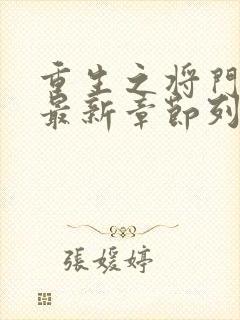 重生之将門
最新章節列
張媛婷